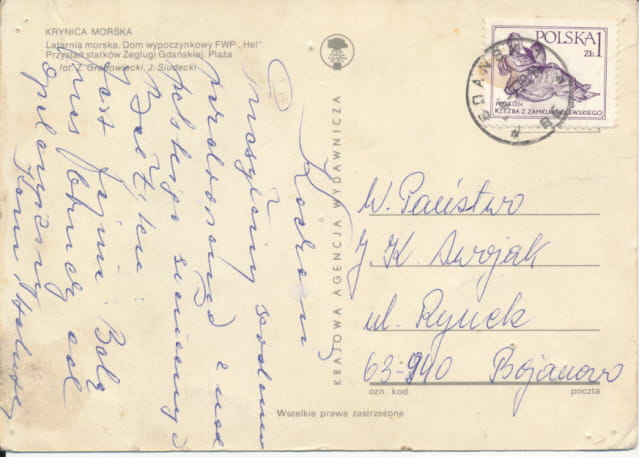 KRYNICA MORSKA
Latarnia morska. Dom wypoczynkowy FWP „Hel"
Przystań statków Żeglugi Gdańskiej. Plaża
fot. Z. Grabowiecki, J. Siudecki
POLSKA 1
ZŁ
POKÓJ
RZEŹBA Z ZAMKU KRÓLEWSKIEGO
GDAŃSK
KRAJOWA AGENCJA WYDAWNICZA
Kochani
pozdrowienia z nad
polskiego
Bałtyku
Jest fajnie. Bolą
nas brzuchy od
W. Państwo
J. K. Dwojak
ul. Rynek
63-940 Bojanowo
ozn. kod.
poczta
Wszelkie prawa zastrzeżone